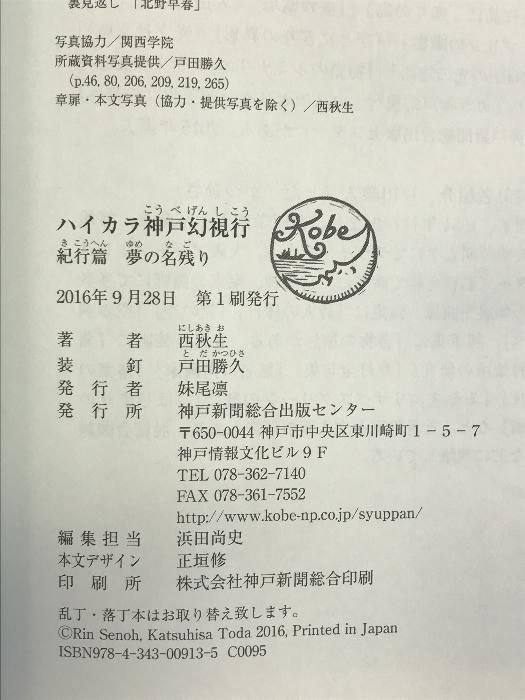 裏見返し「北野早春」
写真協力／関西学院
所蔵資料写真提供／戸田勝久
(p.46, 80, 206, 209, 219, 265)
章扉・本文写真（協力・提供写真を除く）／西秋生
こうべげんしこう
ハイカラ神戸幻視行
きこうへん ゆめ なご
紀行篇 夢の名残り
Kobe
2016年9月28日 第1刷発行
にしあき お
著者 西秋生
とだ かつひさ
装釘 戸田勝久
発行者 妹尾凛
発行所 神戸新聞総合出版センター
〒650-0044 神戸市中央区東川崎町1－5－7
神戸情報文化ビル9F
TEL 078-362-7140
FAX 078-361-7552
http://www.kobe-np.co.jp/syuppan/
編集担当 浜田尚史
本文デザイン 正垣修
印刷所 株式会社神戸新聞総合印刷
乱丁・落丁本はお取り替え致します。
©Rin Senoh, Katsuhisa Toda 2016, Printed in Japan
ISBN978-4-343-00913-5 C0095